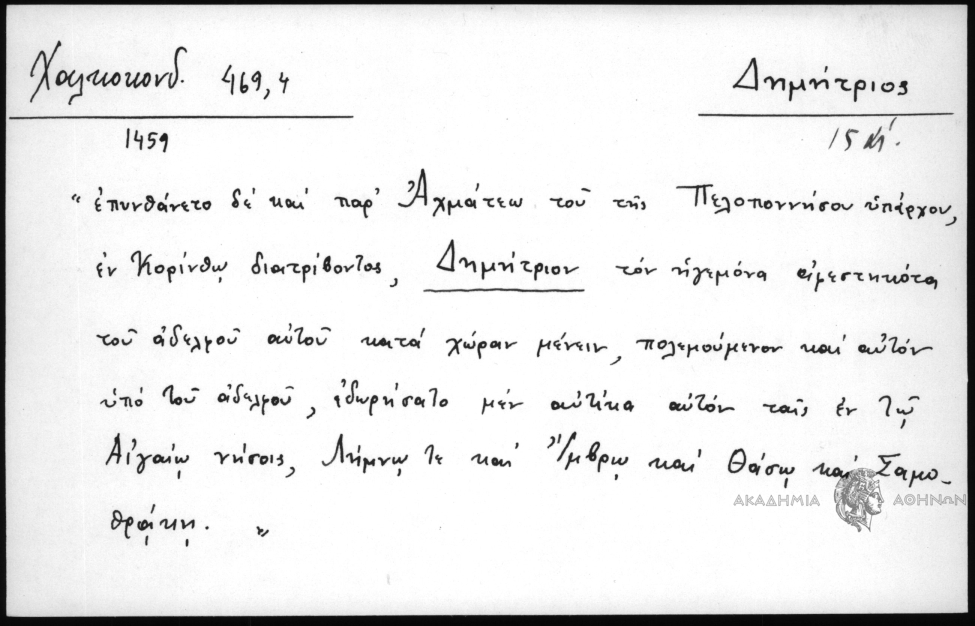 Χαλκοκονδ. 469,4
Δημήτριος
1459
15 αἰ.
"ἐπυνθάνετο δέ καί παρ' Ἀχμάτεω τοῦ τῆς Πελοποννήσου ὑπάρχου,
ἐν Κορίνθῳ διατρίβοντος, Δημήτριον τόν ἡγεμόνα ἀφεστηκότα
τοῦ ἀδελφοῦ αὐτοῦ κατά χώραν μένειν, πολεμούμενον καί αὐτόν
ὑπό τοῦ ἀδελφοῦ, ἐδωρήσατο μέν αὐτίκα αὐτόν ταῖς ἐν τῷ
Αἰγαίῳ νήσοις, Λήμνῳ τε καί Ἴμβρῳ καί Θάσῳ καί Σαμο-
θρᾴκῃ. "
ΑΚΑΔΗΜΙΑ ΑΘΗΝΩΝ